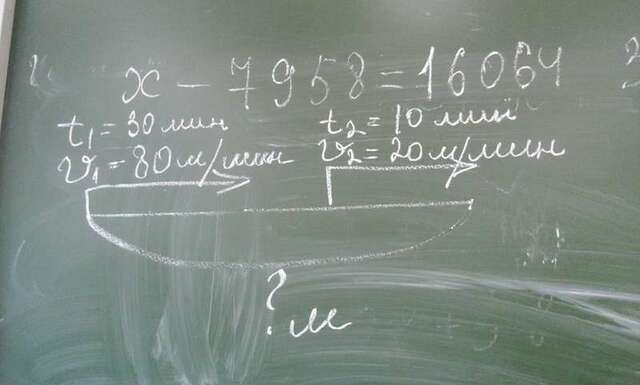 x - 7958 = 16064
t₁ = 30 мин
v₁ = 80 м/мин
t₂ = 10 мин
v₂ = 20 м/мин
? м